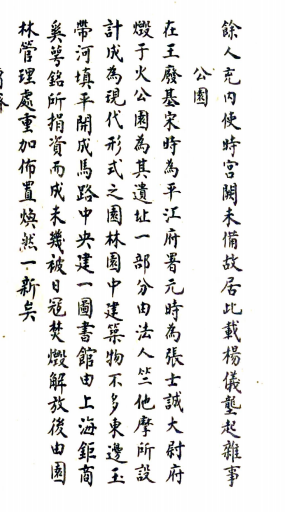 餘人充内使時宮闕未備故居此載楊儀壟起雜事
公園
在王廢基宋時為平江府署元時為張士誠大尉府
燬于火公園為其遺址一部分由法人竺他摩所設
計成為現代形式之園林園中建築物不多東邊玉
帶河填平開成馬路中央建一圖書館由上海鉅商
奚萼銘所捐資而成未幾被日寇焚燬解放後由園
林管理處重加佈置煥然一新矣